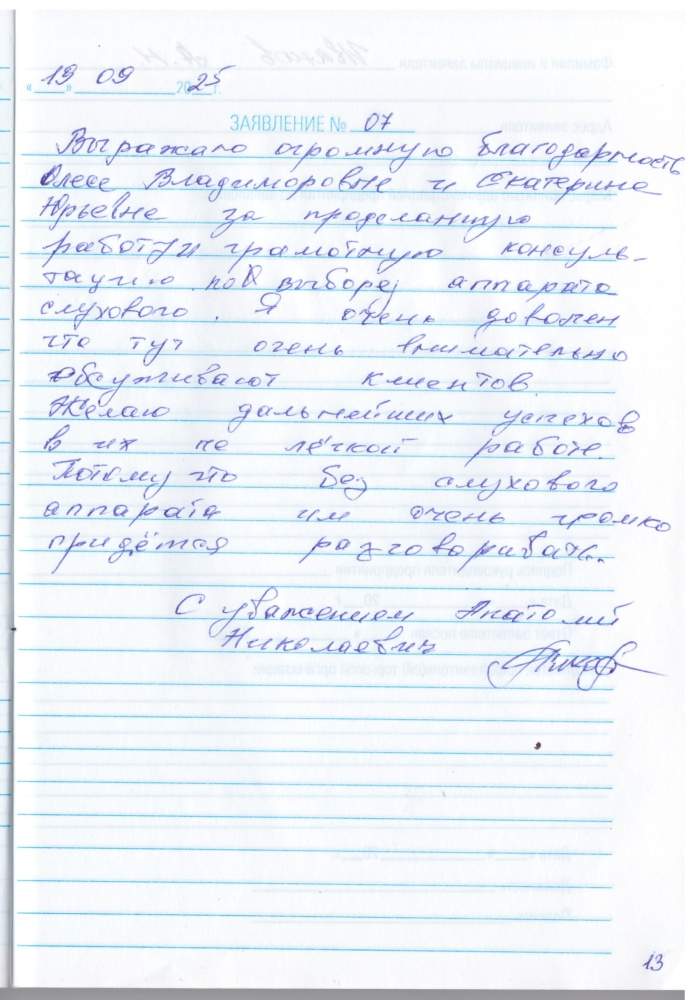 «19» 09 2025 г.
ЗАЯВЛЕНИЕ № 07
Выражаю огромную благодарность
Олесе Владиморовне и Екатерине
Юрьевне за проделанную
работу и грамотную консуль-
тацию по выборе аппарата
слухового. Я очень доволен
что тут очень внимательно
обслуживают клиентов.
Желаю дальнейших успехов
в их не лёгкой работе.
Потому что без слухового
аппарата им очень громко
придётся разговаривать..
С уважением Анатолий
Николаевич
13